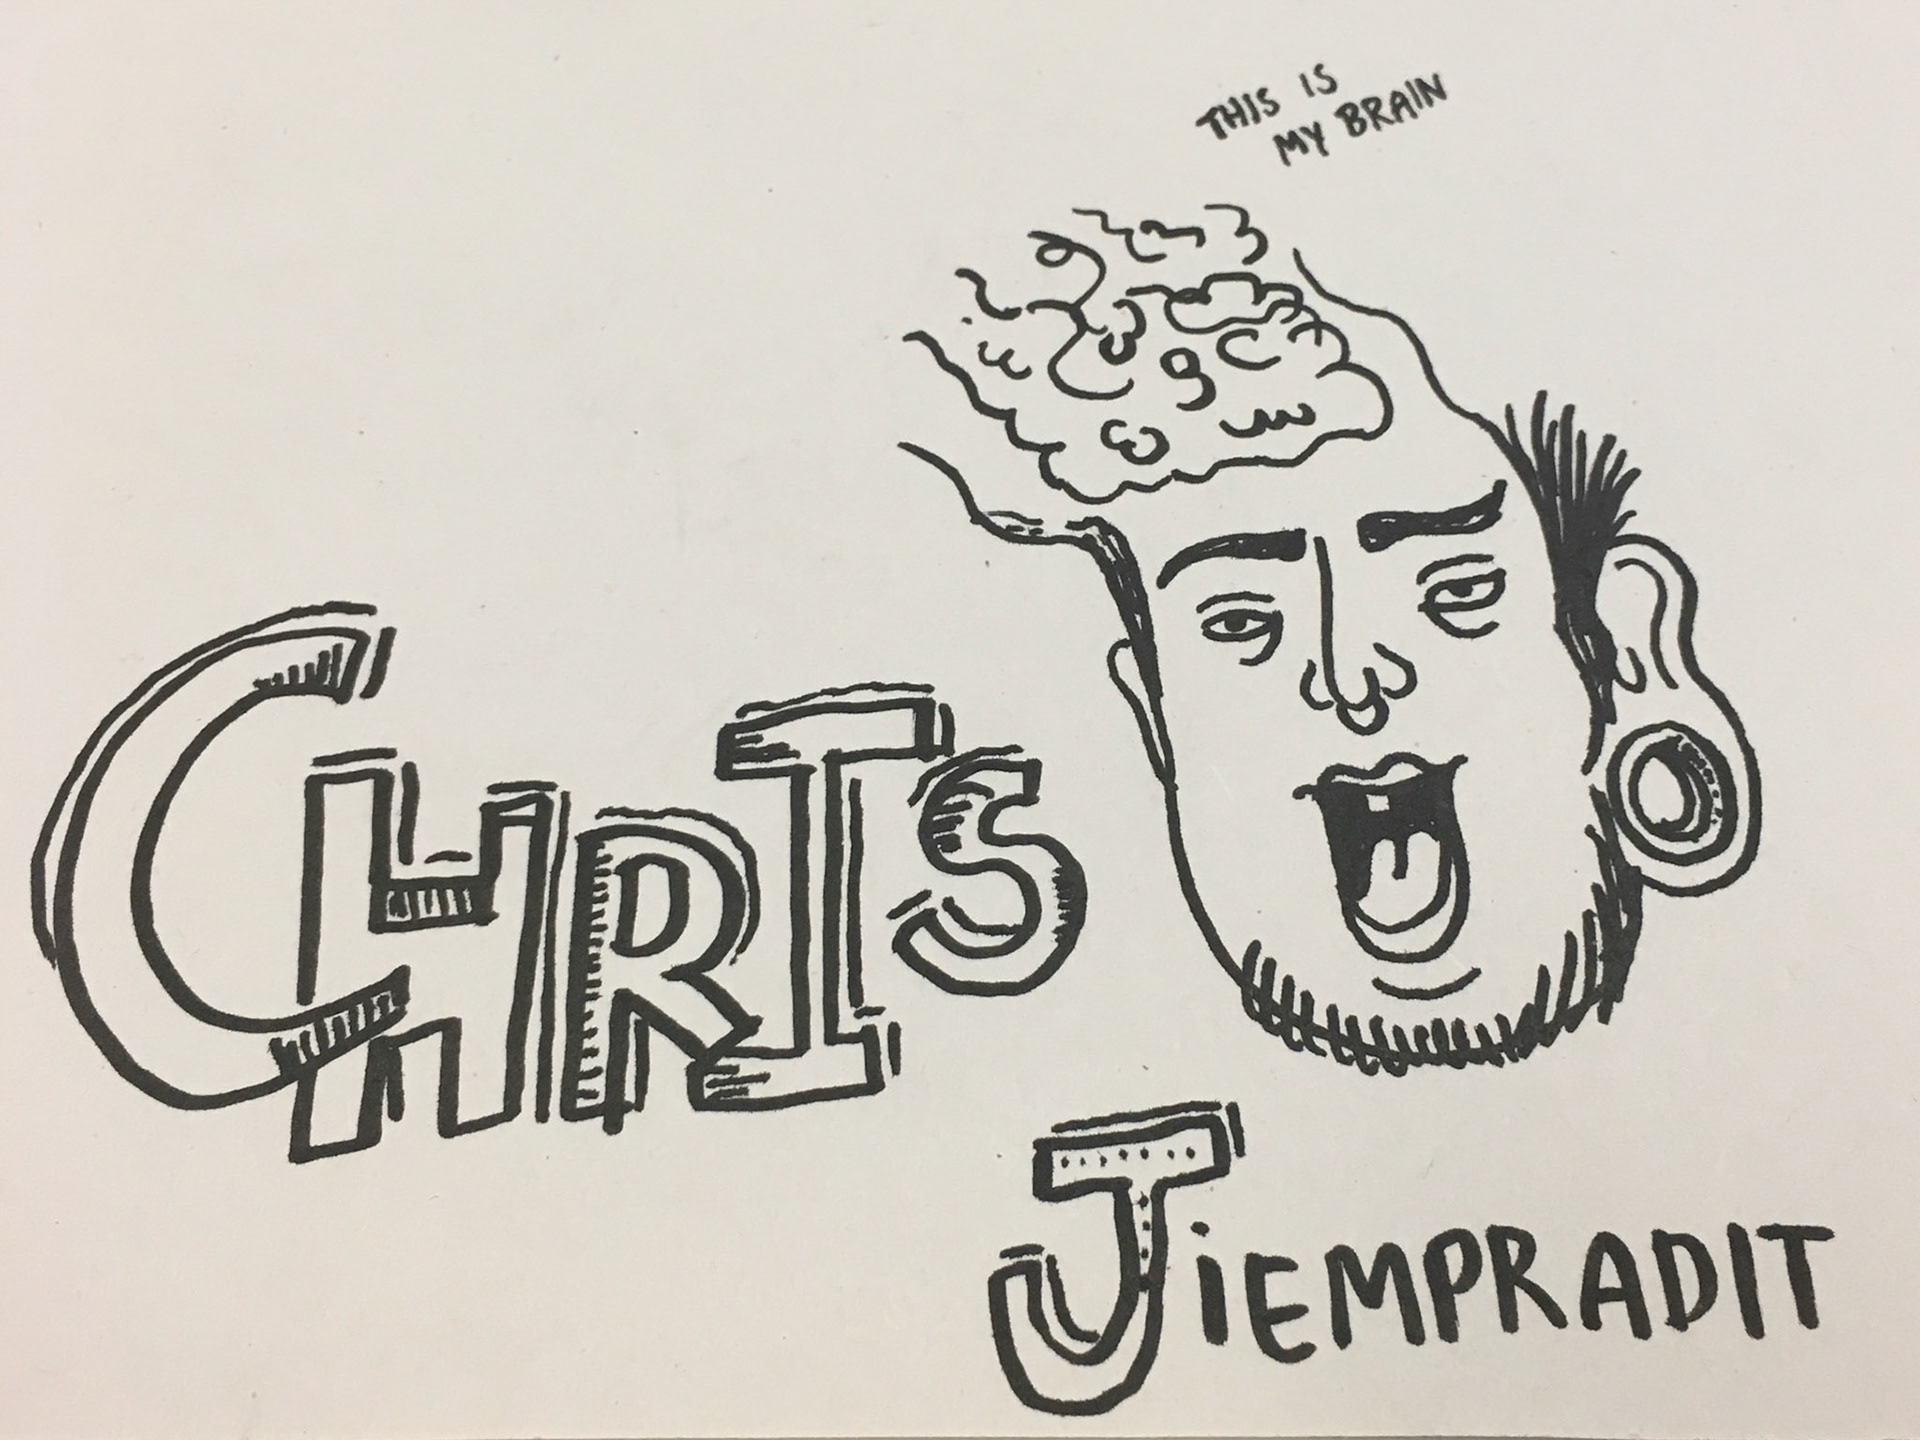 THIS IS
MY BRAIN
CHRIS
JiEMPRADIT